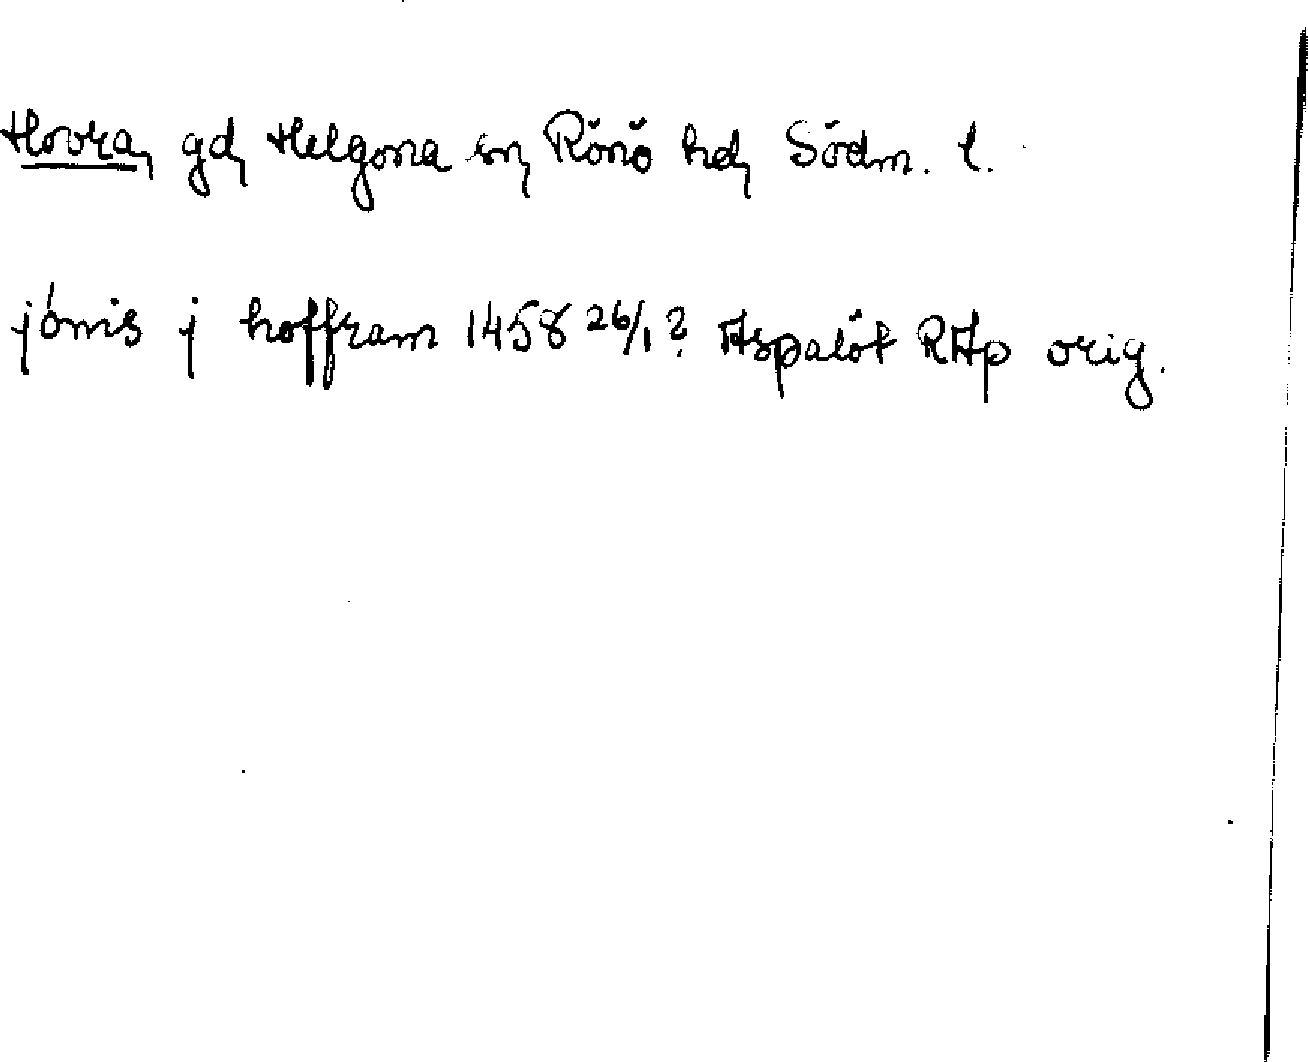 Hovra, gd, Helgona sn, Rönö hd, Södm. l.
jönis j hoffram 1458 26/1? Aspalöt RAp orig.